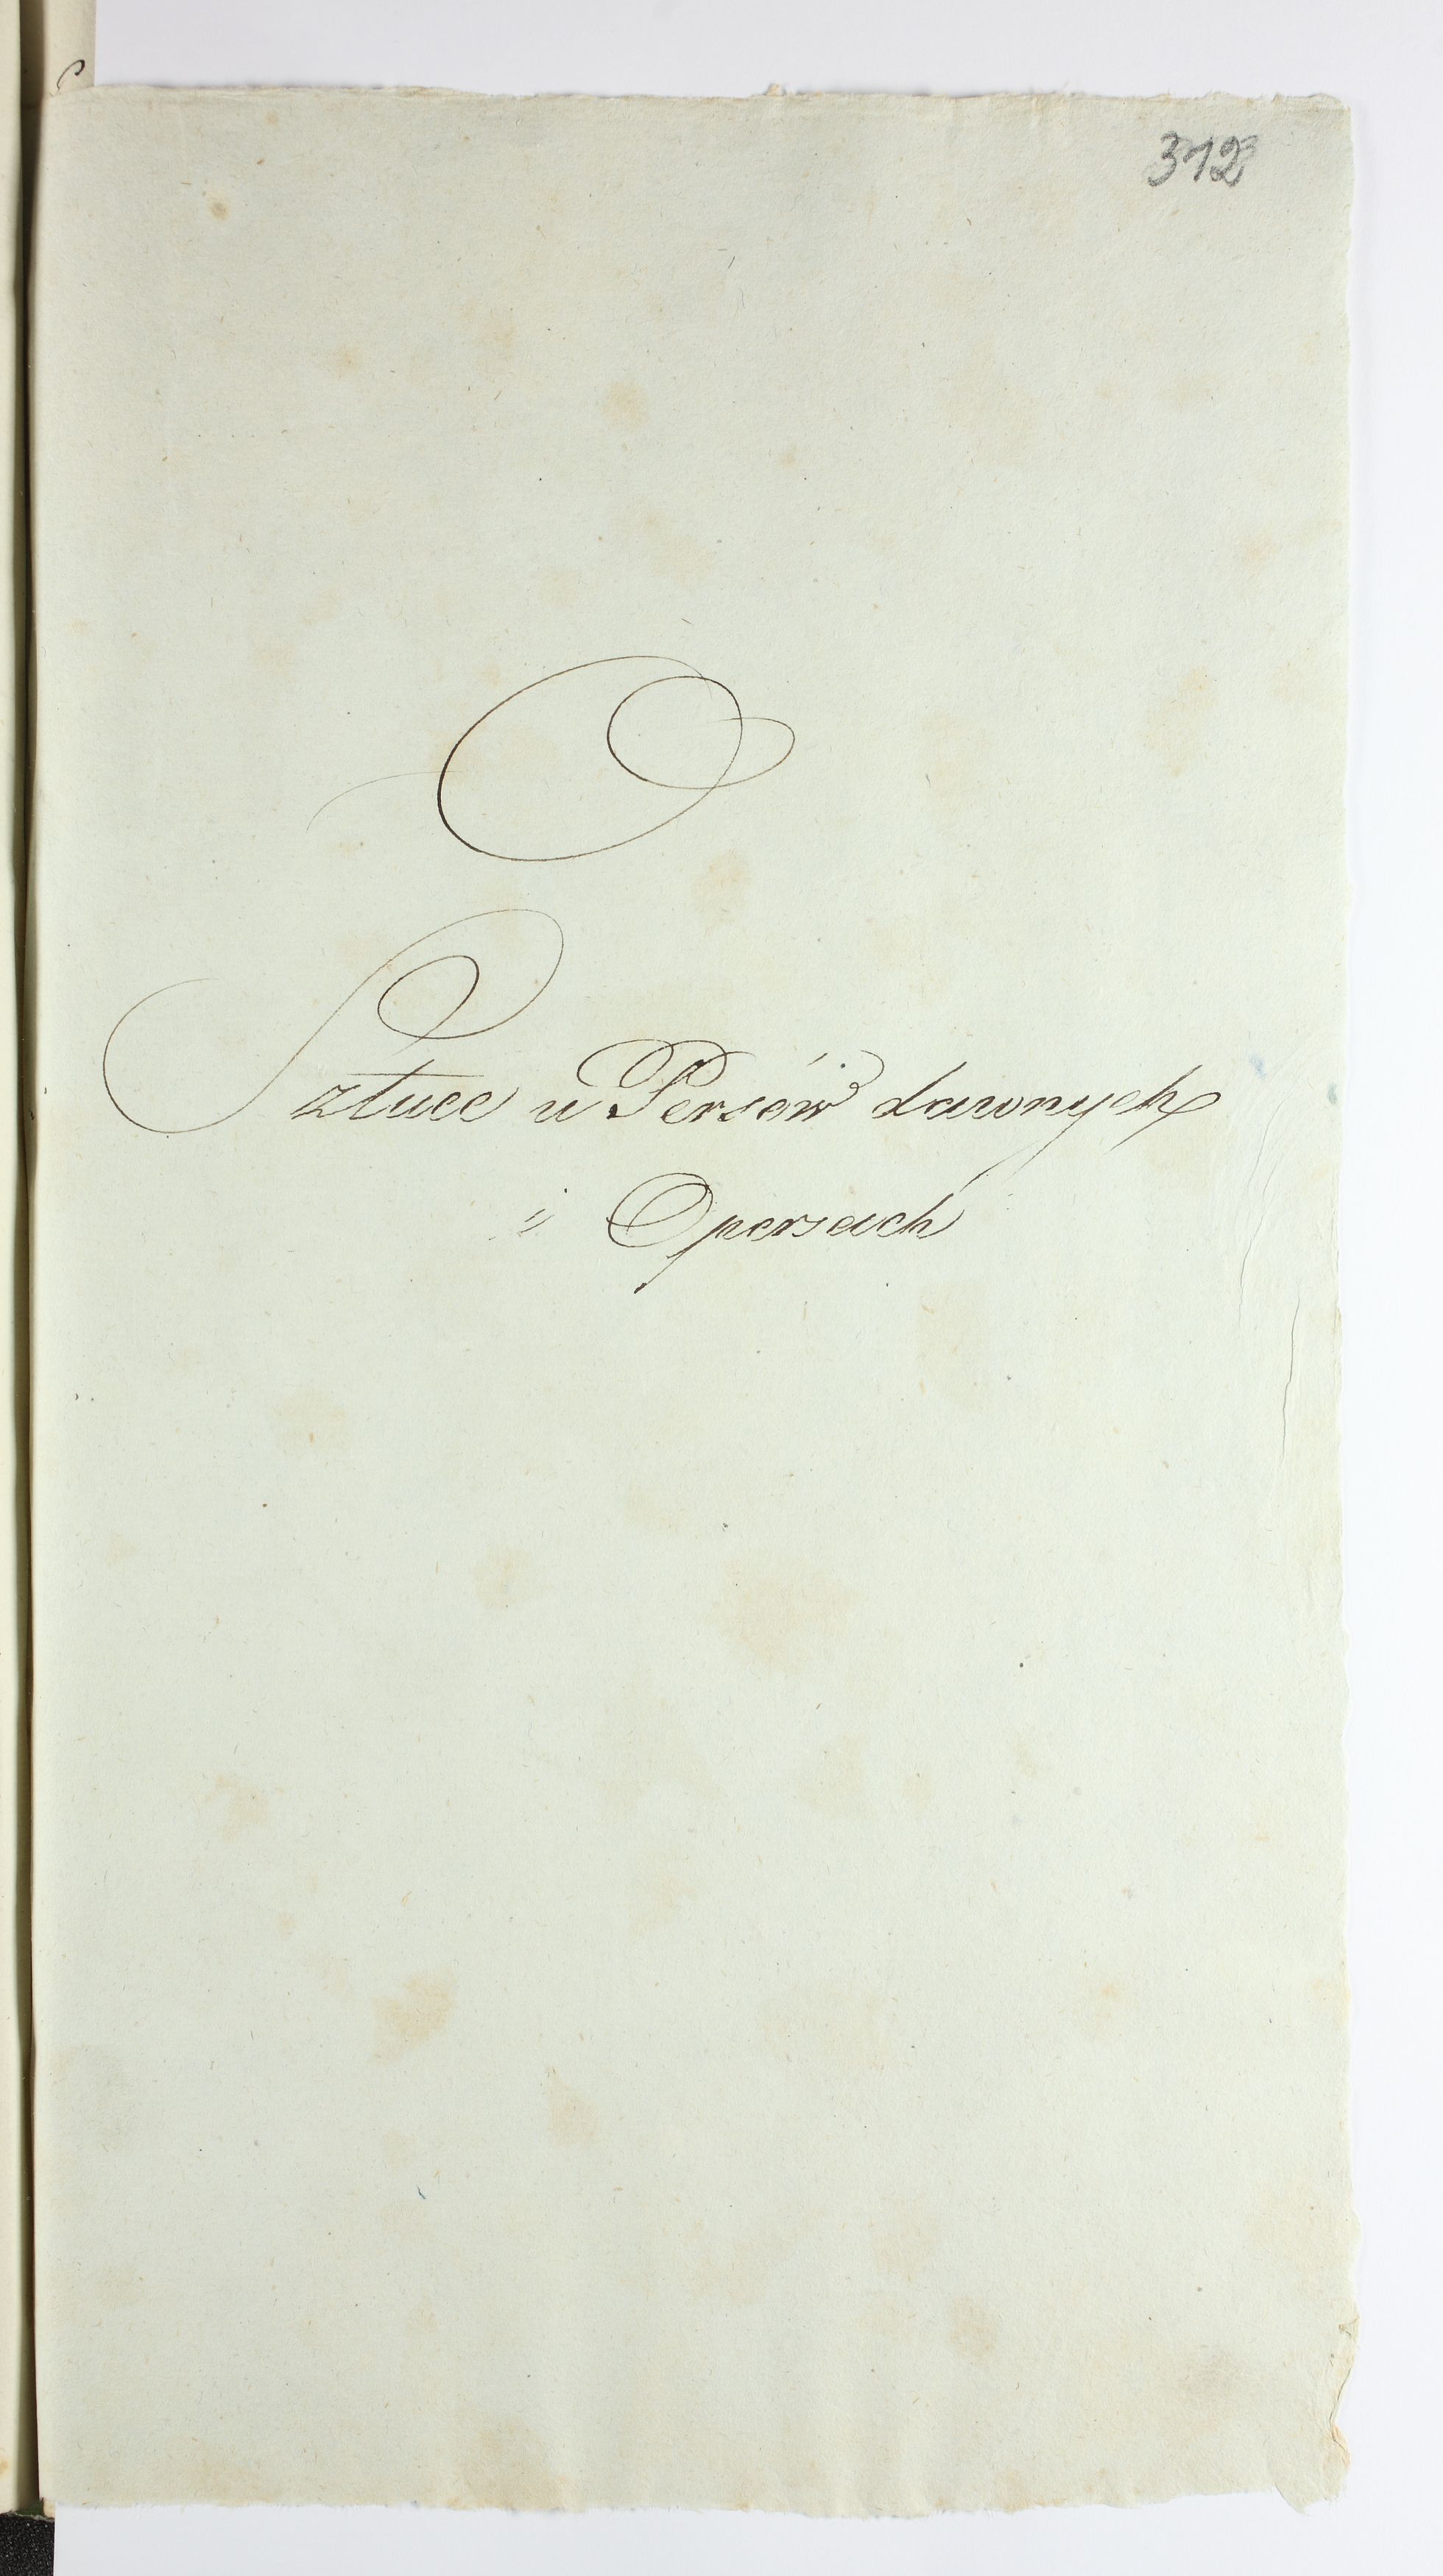 312
O
Sztuce u Persów dawnych
i Opersach